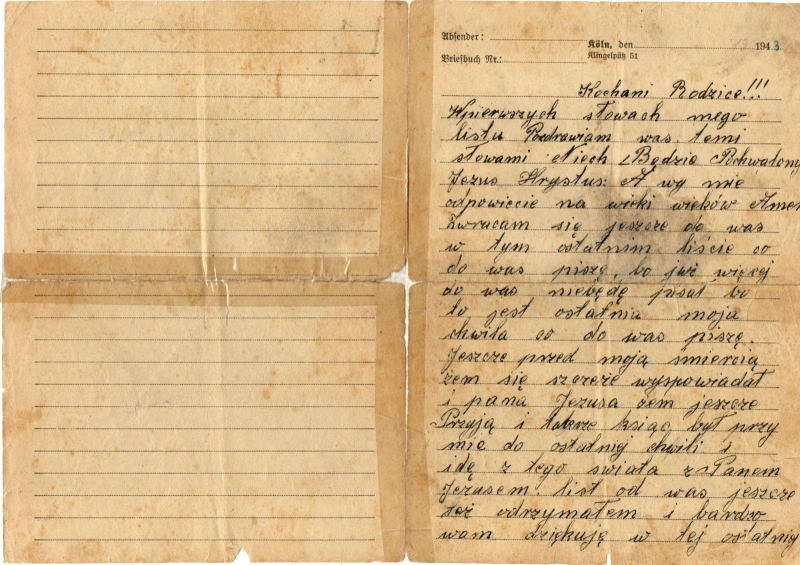 Absender:
Köln, den 194 3
Briefbuch Nr.:
Klingelpütz 51
Kochani Rodzice!!!
Wpierwszych słowach mego
listu Pozdrawiam was temi
słowami Niech Będzie Pochwalony
Jezus Hrystus: A wy mie
odpowiccie na wieki wieków Amen
Zwracam się jeszcze do was
w tym ostatnim liście co
do was piszę, bo już więcej
do was niebędę pisał bo
to jest ostatnia moja
chwila co do was piszę.
Jeszcze przed moją śmiercią
żem się szczeże wyspowiadał
i paną Jezusa żem jeszcze
Przyją i także ksiąc był przy
mie do ostatniej chwili i
idę z tego świata z Panem
Jezusem. list od was jeszcze
też odrzymałem i bardzo
wam dziękuję w tej ostatniej